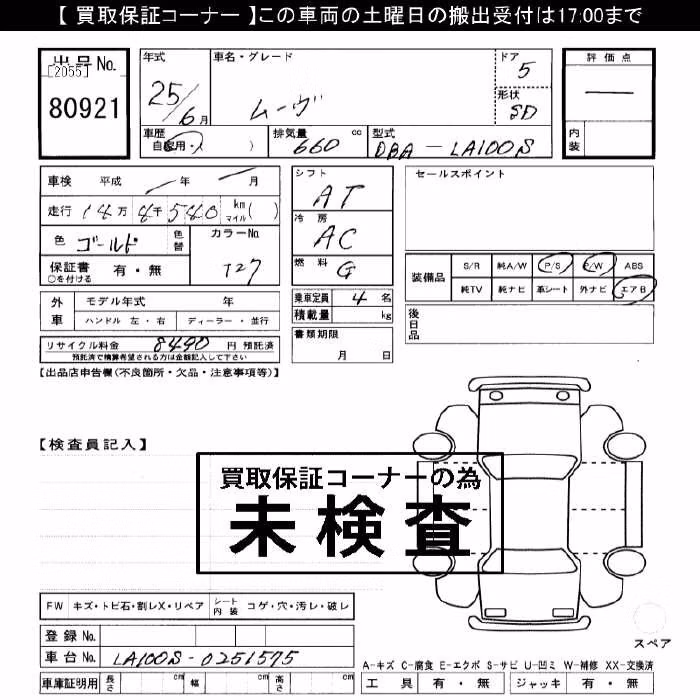 【 買取保証コーナー 】この車両の土曜日の搬出受付は17:00まで
出品No.
[2055]
80921
年式
25/6月
車名・グレード
ムーヴ
ドア
5
形状
SD
評価点
内装
車歴
自家用・( )
排気量
660 cc
型式
DBA-LA100S
車検 平成 年 月
走行 14万 8千 540 km マイル ( )
色 ゴールド 色替
カラーNo.
T27
保証書 有・無
○を付ける
シフト
AT
冷房
AC
燃料
G
乗車定員 4 名
積載量 kg
書類期限
月 日
セールスポイント
装備品
S/R 純A/W P/S P/W ABS
純TV 純ナビ 革シート 外ナビ エアB
後日品
外車
モデル年式 年
ハンドル 左・右 ディーラー・並行
リサイクル料金 8490 円 預託済
預託済で精算希望される方は金額記入して下さい
【出品店申告欄(不良箇所・欠品・注意事項等)】
【検査員記入】
買取保証コーナーの為
未検査
FW キズ・トビ石・割レX・リペア シート内装 コゲ・穴・汚レ・破レ
登録No.
車台No. LA100S-0251575
車庫証明用 長さ cm 幅 cm 高さ cm
スペア
A-キズ C-腐食 E-エクボ S-サビ U-凹ミ W-補修 XX-交換済
工具 有・無 ジャッキ 有・無